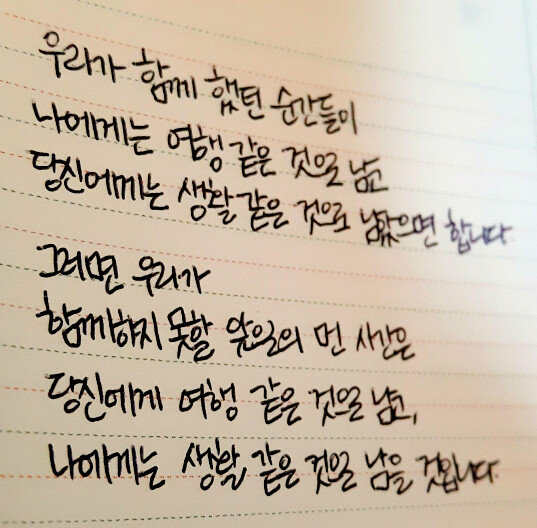 우리가 함께 했던 순간들이
나에게는 여행 같은 것으로 남고
당신에게는 생활 같은 것으로 남았으면 합니다.
그러면 우리가
함께하지 못할 앞으로의 먼 시간은
당신에게 여행 같은 것으로 남고,
나에게는 생활 같은 것으로 남을 것입니다.